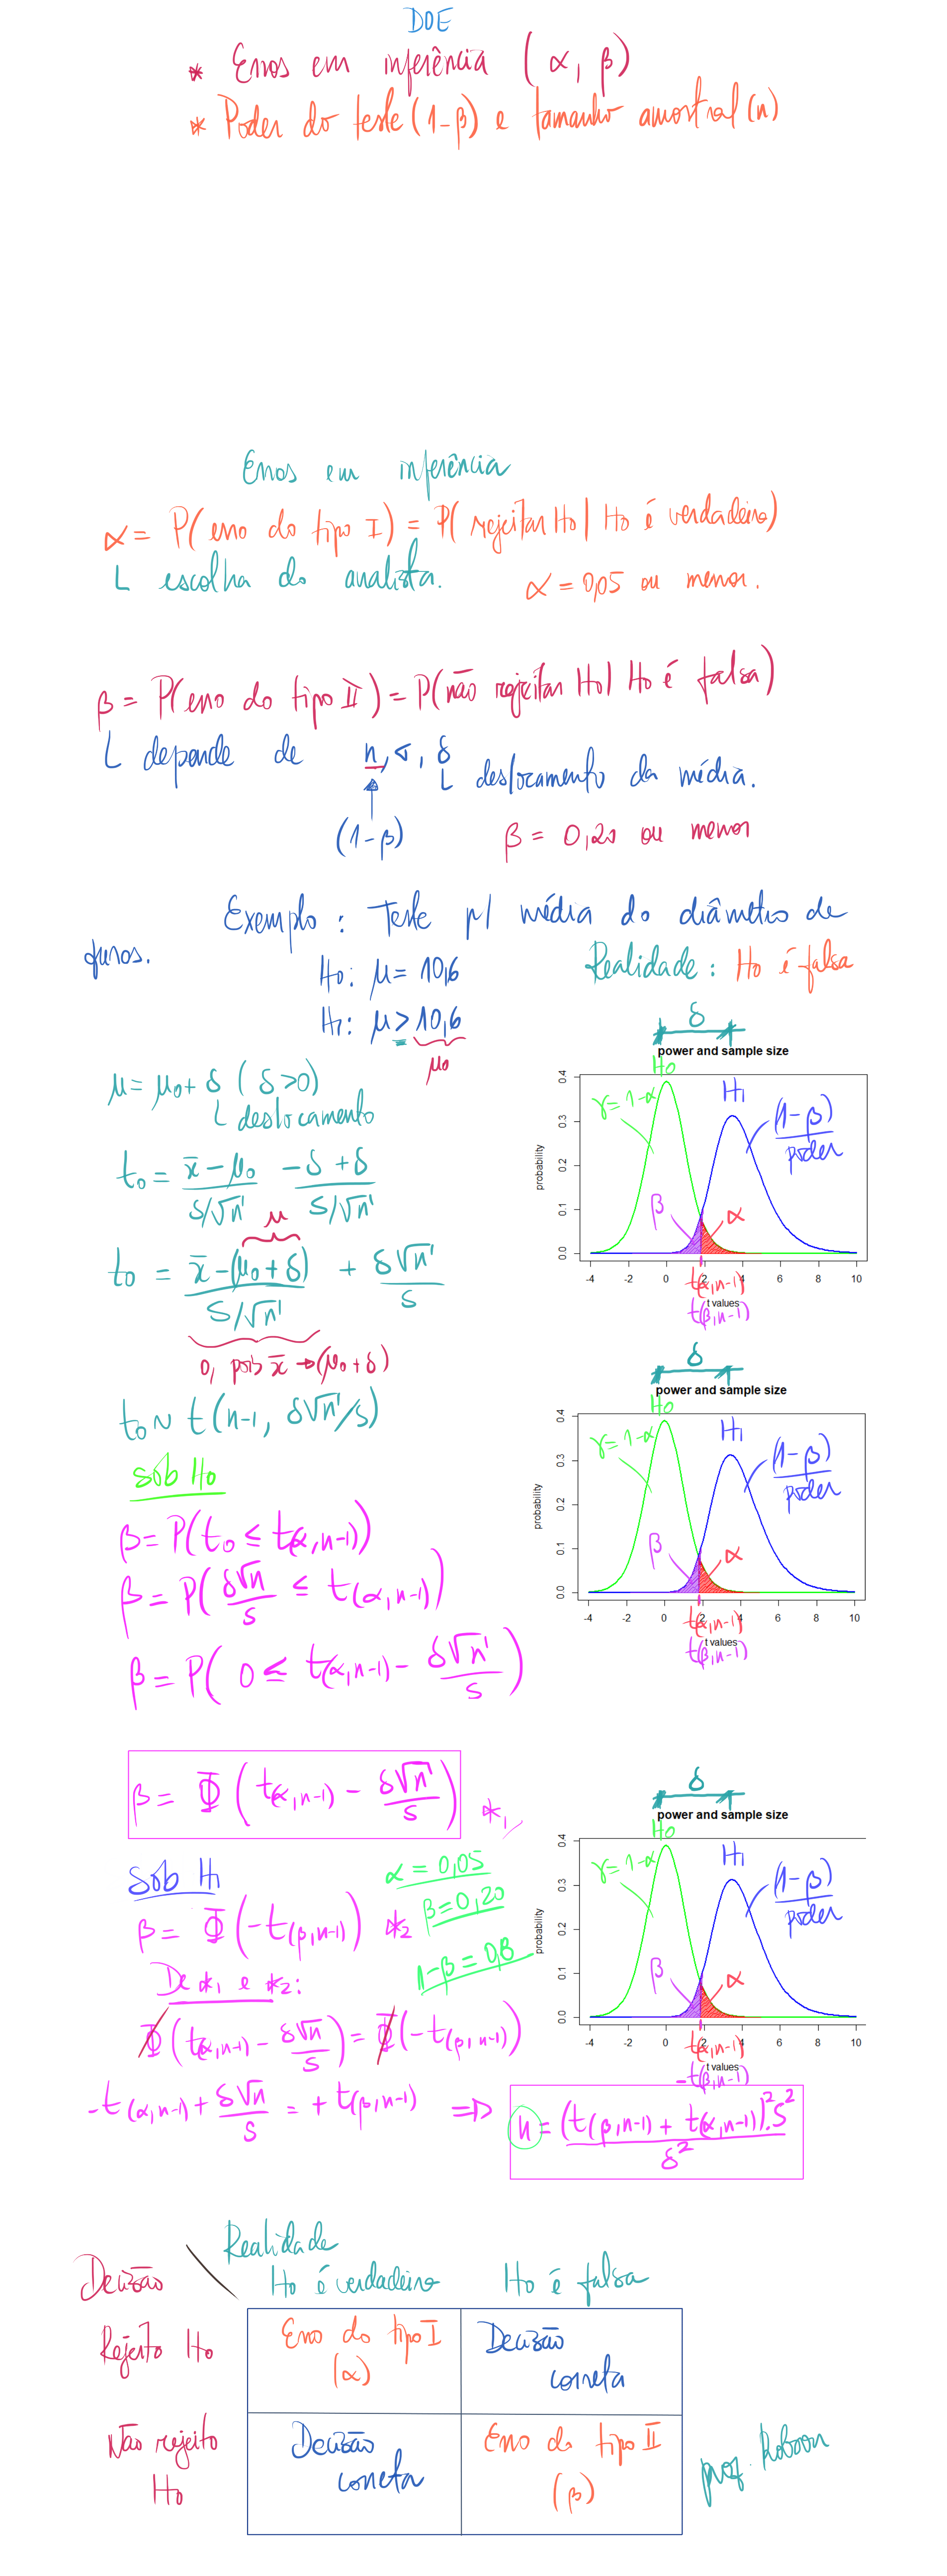 DOE
* Erros em inferência (α, β)
* Poder do teste (1-β) e tamanho amostral (n)
Erros em inferência
α = P(erro do tipo I) = P(rejeitar H0 | H0 é verdadeira)
L escolha do analista.
α = 0,05 ou menor.
β = P(erro do tipo II) = P(não rejeitar H0 | H0 é falsa)
L depende de n, σ, δ
L deslocamento da média.
(1-β)
β = 0,20 ou menor
Exemplo: Teste p/ média do diâmetro de
furos.
H0: μ = 10,6
Realidade: H0 é falsa
H1: μ > 10,6
μ0
μ = μ0 + δ (δ > 0)
L deslocamento
t0 = (x̄ - μ0)/(S/√n) (-δ + δ)/(S/√n)
μ
t0 = (x̄ - (μ0 + δ))/(S/√n) + δ√n/S
0, pois x̄ → (μ0 + δ)
t0 ~ t(n-1, δ√n/S)
sob H0
β = P(t0 ≤ t(α,n-1))
β = P(δ√n/S ≤ t(α,n-1))
β = P(0 ≤ t(α,n-1) - δ√n/S)
β = Φ(t(α,n-1) - δ√n/S) *1
sob H1
α = 0,05
β = 0,20
1-β = 0,8
β = Φ(-t(β,n-1)) *2
De *1 e *2:
Φ(t(α,n-1) - δ√n/S) = Φ(-t(β,n-1))
-t(α,n-1) + δ√n/S = + t(β,n-1) ⇒ n = (t(β,n-1) + t(α,n-1))².S²/δ²
δ
power and sample size
H0
H1
γ = 1-α
(1-β)
poder
β
α
probability
0.4
0.3
0.2
0.1
0.0
-4 -2 0 2 4 6 8 10
t(α,n-1)
t values
t(β,n-1)
δ
power and sample size
H0
H1
γ = 1-α
(1-β)
poder
β
α
probability
0.4
0.3
0.2
0.1
0.0
-4 -2 0 2 4 6 8 10
t(α,n-1)
t values
t(β,n-1)
δ
power and sample size
H0
H1
γ = 1-α
(1-β)
poder
β
α
probability
0.4
0.3
0.2
0.1
0.0
-4 -2 0 2 4 6 8 10
t(α,n-1)
t values
-t(β,n-1)
Realidade
Decisão
H0 é verdadeira
H0 é falsa
Rejeito H0
Erro do tipo I
(α)
Decisão
correta
Não rejeito
H0
Decisão
correta
Erro do tipo II
(β)
prof. Robson